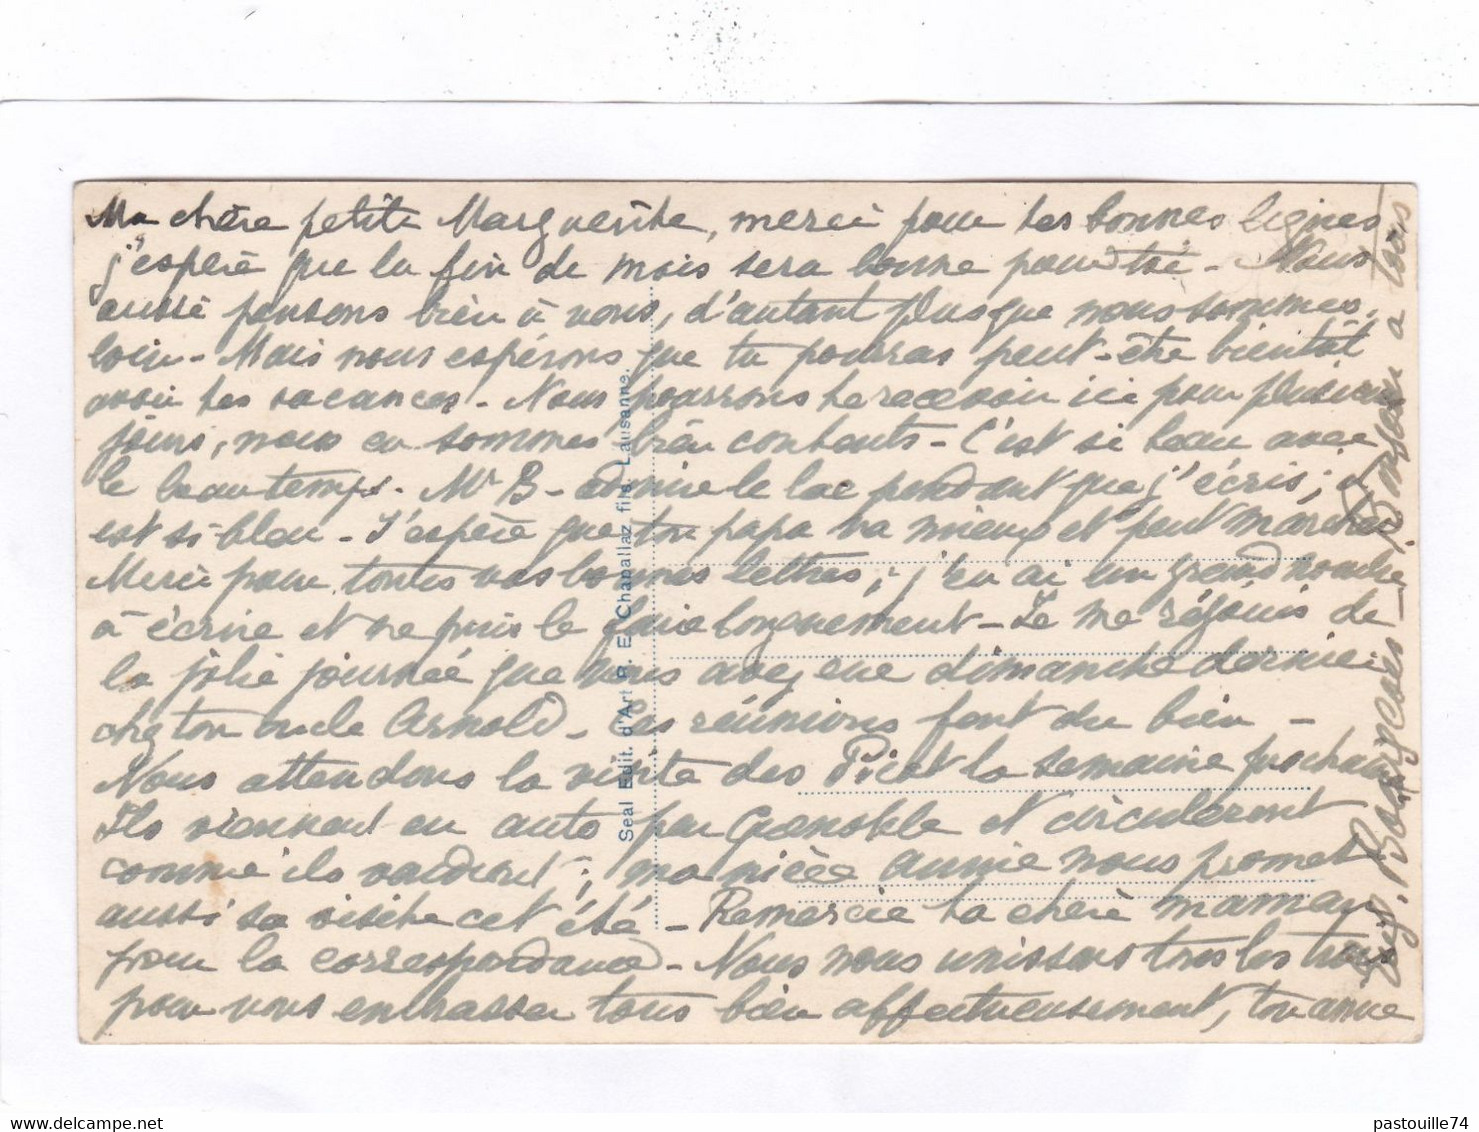 Ma chère petite Marguerite, merci pour tes bonnes lignes
j'espère que la fin de mois sera bonne pour toi - Nous
aussi pensons bien à vous, d'autant plus que nous sommes
loin - Mais nous espérons que tu pourras peut-être bientôt
avoir tes vacances - Nous pourrons te recevoir ici pour plusieurs
jours, nous en sommes bien contents - C'est si beau avec
le beau temps. Mr B - admire le lac pendant que j'écris; il
est si bleu - J'espère que ton papa va mieux et peut marcher
Merci pour toutes vos bonnes lettres; j'en ai un grand nombre
à écrire et ne puis le faire longuement - Je me réjouis de
la jolie journée que vous avez eue dimanche dernier
chez ton oncle Arnold - Ces réunions font du bien -
Nous attendons la visite des Picot la semaine prochaine
Ils viennent en auto par Grenoble et circuleront
comme ils voudront; ma nièce Annie nous promet
aussi sa visite cet été - Remercie ta chère maman
pour la correspondance - Nous nous unissons tous les trois
pour vous embrasser tous bien affectueusement, ton amie
Bourgeois - Bonjour à tous
Seal Edit. d'Art R. E. Chapallaz fils, Lausanne.
pastouille74